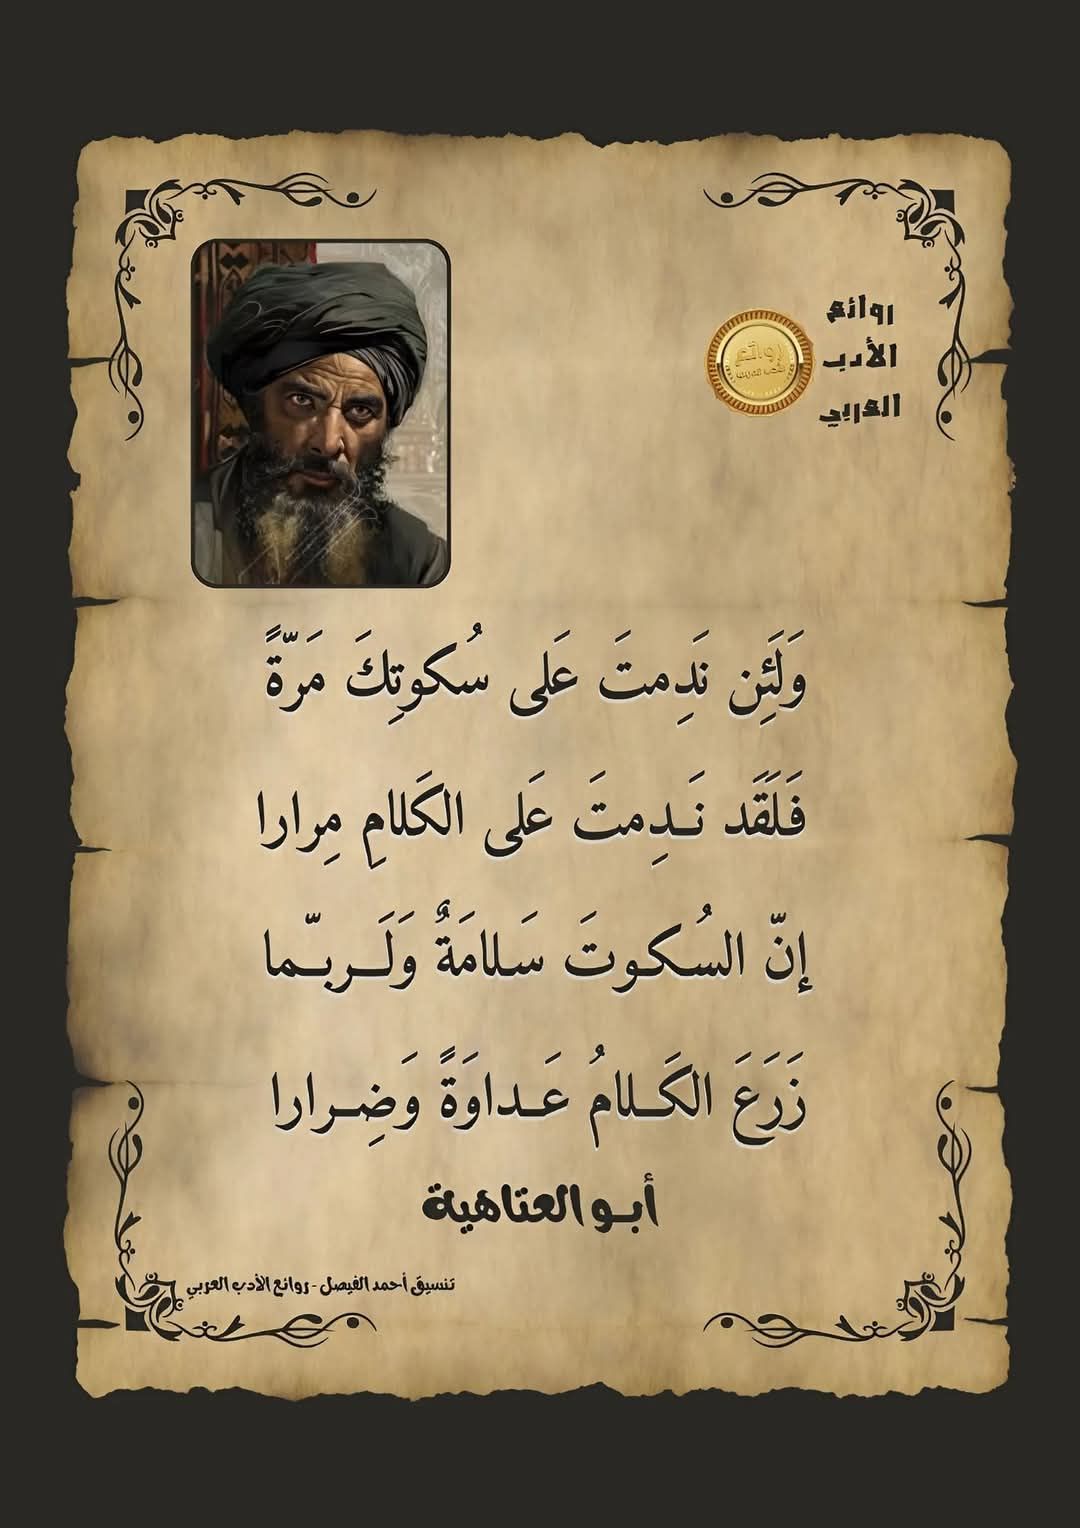 روائع
الأدب
العربي
روائع
وَلَئِن نَدِمتَ عَلى سُكوتِكَ مَرّةً
فَلَقَد نَـدِمتَ عَلى الكَلامِ مِرارا
إنّ السُكـوتَ سَـلامَةٌ وَلَــربـّـما
زَرَعَ الكَــلامُ عَـداوَةً وَضِـرارا
أبــو العتاهية
تنسيق أحمد الفيصل - روائع الأدب العربي